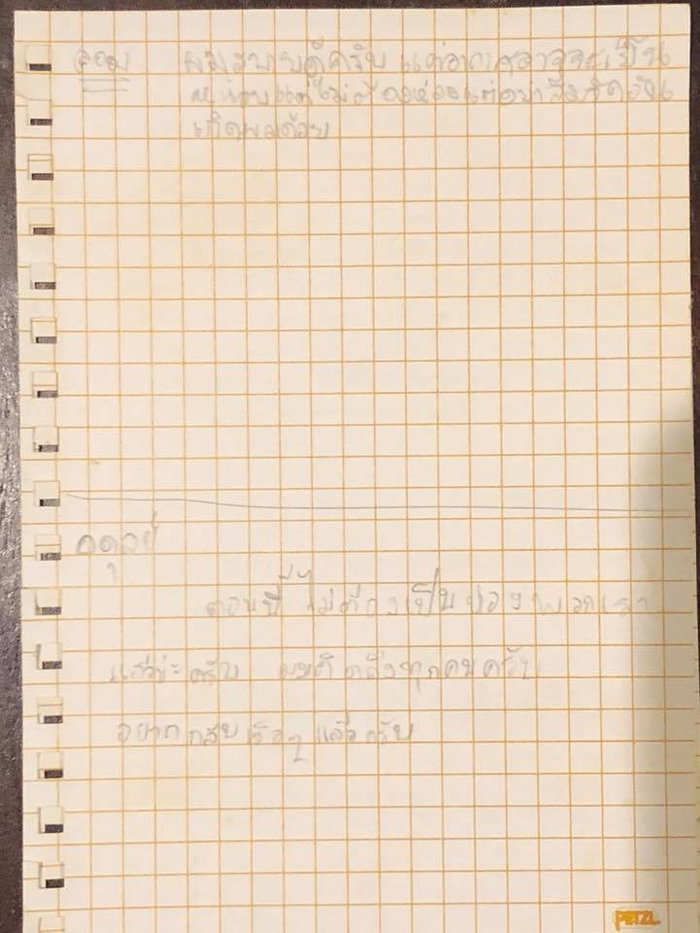 ดอม ผมสบายดีครับ แต่อากาศอาจจะเย็น
หน่อยแต่ไม่ต้องห่วงแต่อย่าลืมวัน
เกิดผมด้วย
อดุลย์
ตอนนี้ไม่ต้องเป็นห่วงพวกเรา
แล้วนะครับ ผมคิดถึงทุกคนครับ
อยากกลับเร็วๆ แล้วครับ
PETZL